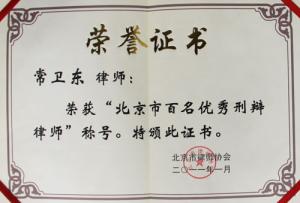 荣誉证书
常卫东 律师：
荣获“北京市百名优秀刑辩
律师”称号。特颁此证书。
北京市律师协会
二〇一一年一月